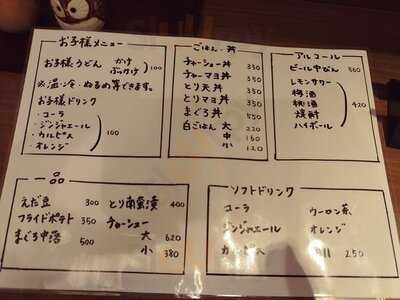 お子様メニュー
お子様うどん かけ
ぶっかけ 100
※温・冷・ぬるめ等できます。
お子様ドリンク
・コーラ
・ジンジャエール
・カルピス 100
・オレンジ
ごはん・丼
チャーシュー丼 350
チャーマヨ丼 350
とり天丼 350
とりマヨ丼 350
まぐろ丼 550
白ごはん 大 220
中 160
小 120
アルコール
ビール中びん 560
レモンサワー
梅酒
桃酒 420
焼酎
ハイボール
一品
えだ豆 300
フライドポテト 350
まぐろ中落 500
とり南蛮漬 400
チャーシュー
大 620
小 380
ソフトドリンク
コーラ ウーロン茶
ジンジャエール オレンジ
カルピス 250